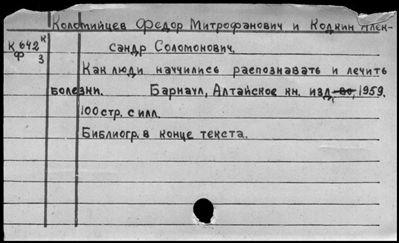 Коломийцев Федор Митрофанович и Кодкин Алек-
К 642 к
Ф 3
сандр Соломонович.
Как люди научились распознавать и лечить
болезни. Барнаул, Алтайское кн. изд-во, 1959.
100 стр. с илл.
Библиогр. в конце текста.